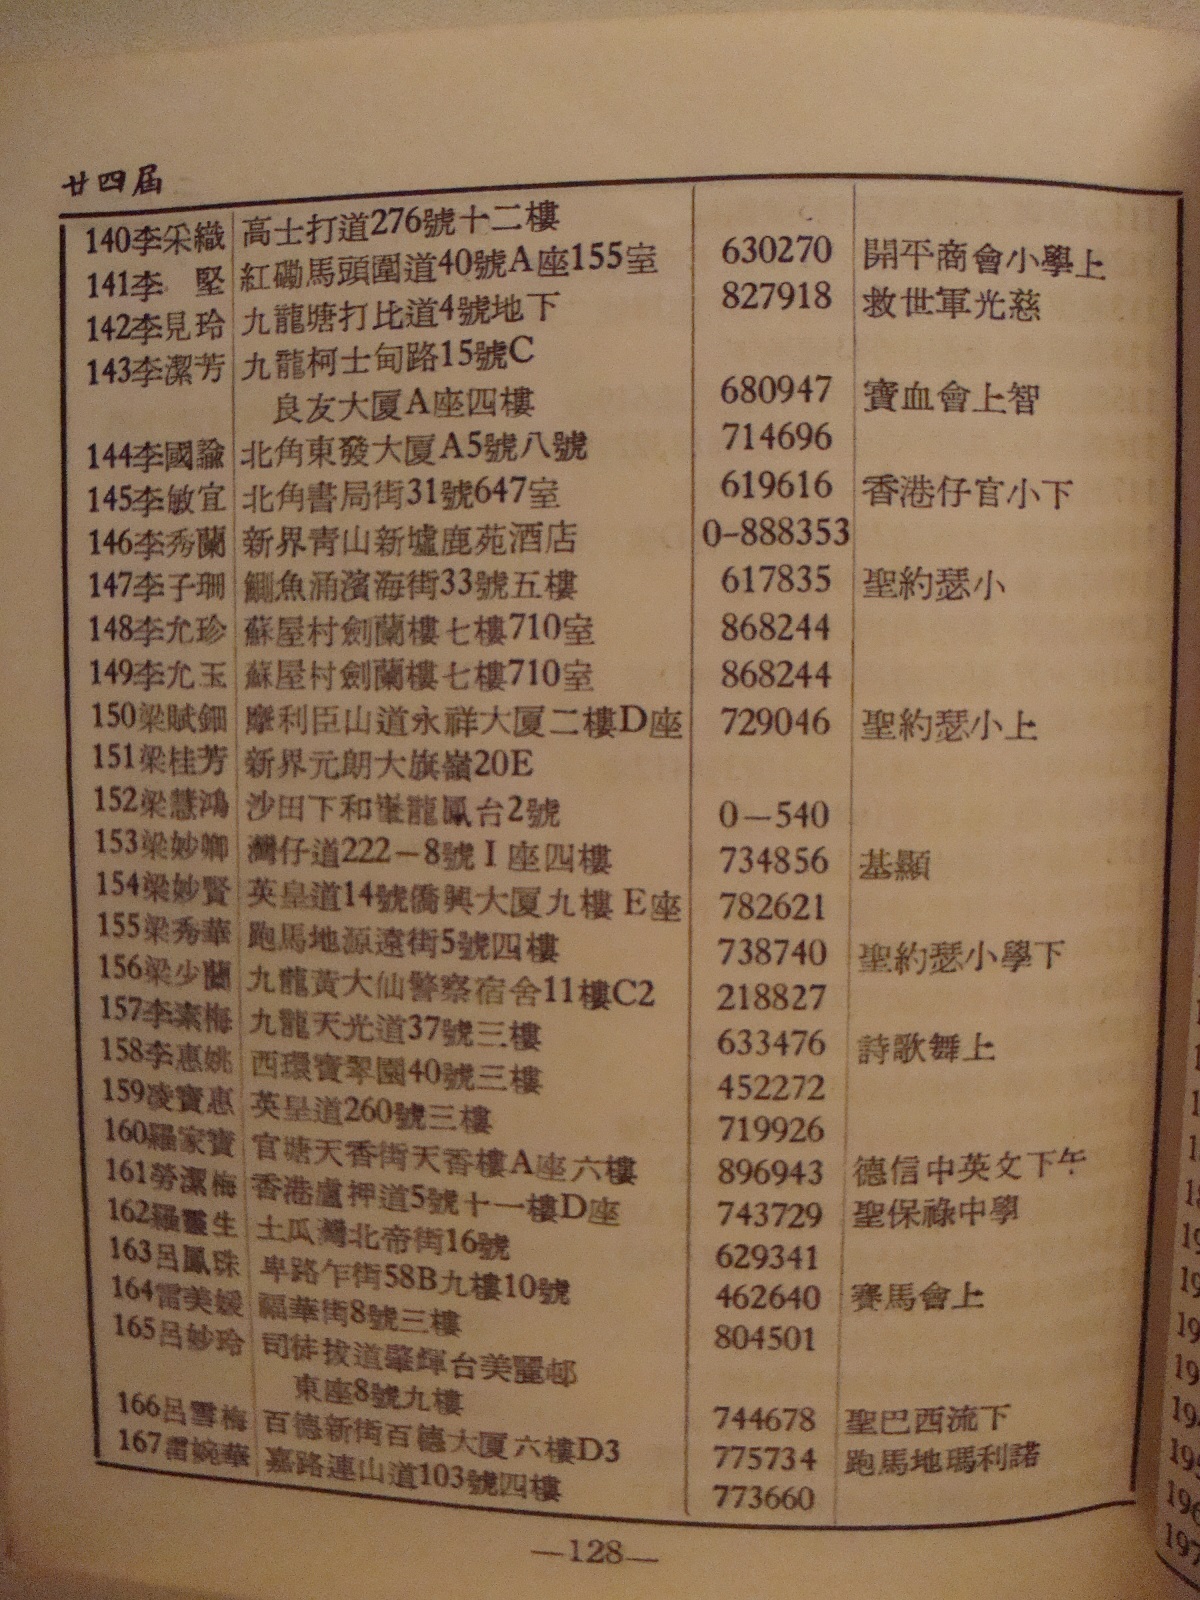 廿四屆
140李采織 高士打道276號十二樓
141李　堅 紅磡馬頭圍道40號A座155室 630270 開平商會小學上
142李見玲 九龍塘打比道4號地下 827918 救世軍光慈
143李潔芳 九龍柯士甸路15號C
良友大厦A座四樓 680947 寶血會上智
144李國瑜 北角東發大厦A5號八號 714696
145李敏宜 北角書局街31號647室 619616 香港仔官小下
146李秀蘭 新界靑山新墟鹿苑酒店 0-888353
147李子珊 鰂魚涌濱海街33號五樓 617835 聖約瑟小
148李允珍 蘇屋村劍蘭樓七樓710室 868244
149李允玉 蘇屋村劍蘭樓七樓710室 868244
150梁賦鈿 摩利臣山道永祥大厦二樓D座 729046 聖約瑟小上
151梁桂芳 新界元朗大旗嶺20E
152梁慧鴻 沙田下和輋龍鳳台2號 0—540
153梁妙卿 灣仔道222－8號I座四樓 734856 基顯
154梁妙賢 英皇道14號僑興大厦九樓E座 782621
155梁秀華 跑馬地源遠街5號四樓 738740 聖約瑟小學下
156梁少蘭 九龍黃大仙警察宿舍11樓C2 218827
157李素梅 九龍天光道37號三樓 633476 詩歌舞上
158李惠姚 西環寶翠園40號三樓 452272
159凌寶惠 英皇道260號三樓 719926
160羅家寶 官塘天香街天香樓A座六樓 896943 德信中英文下午
161勞潔梅 香港盧押道5號十一樓D座 743729 聖保祿中學
162羅靈生 土瓜灣北帝街16號 629341
163呂鳳珠 卑路乍街58B九樓10號 462640 賽馬會上
164雷美媛 福華街8號三樓 804501
165呂妙玲 司徒拔道肇輝台美麗邨
東座8號九樓 744678 聖巴西流下
166呂雪梅 百德新街百德大厦六樓D3 775734 跑馬地瑪利諾
167雷婉華 嘉路連山道103號四樓 773660
—128—